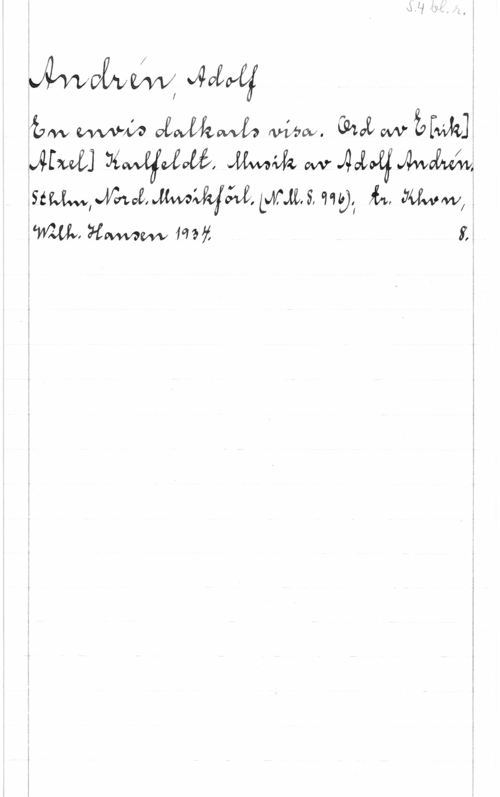 S. 4 bl. r.
Andrén, Adolf
En envis dalkarls visa. Ord av E[rik]
A[xel] Karlfeldt. Musik av Adolf Andrén.
Sthlm, Nord. Musikförl. (N.M.S. 996), tr. Khvn,
Wilh. Hansen 1934. 8.